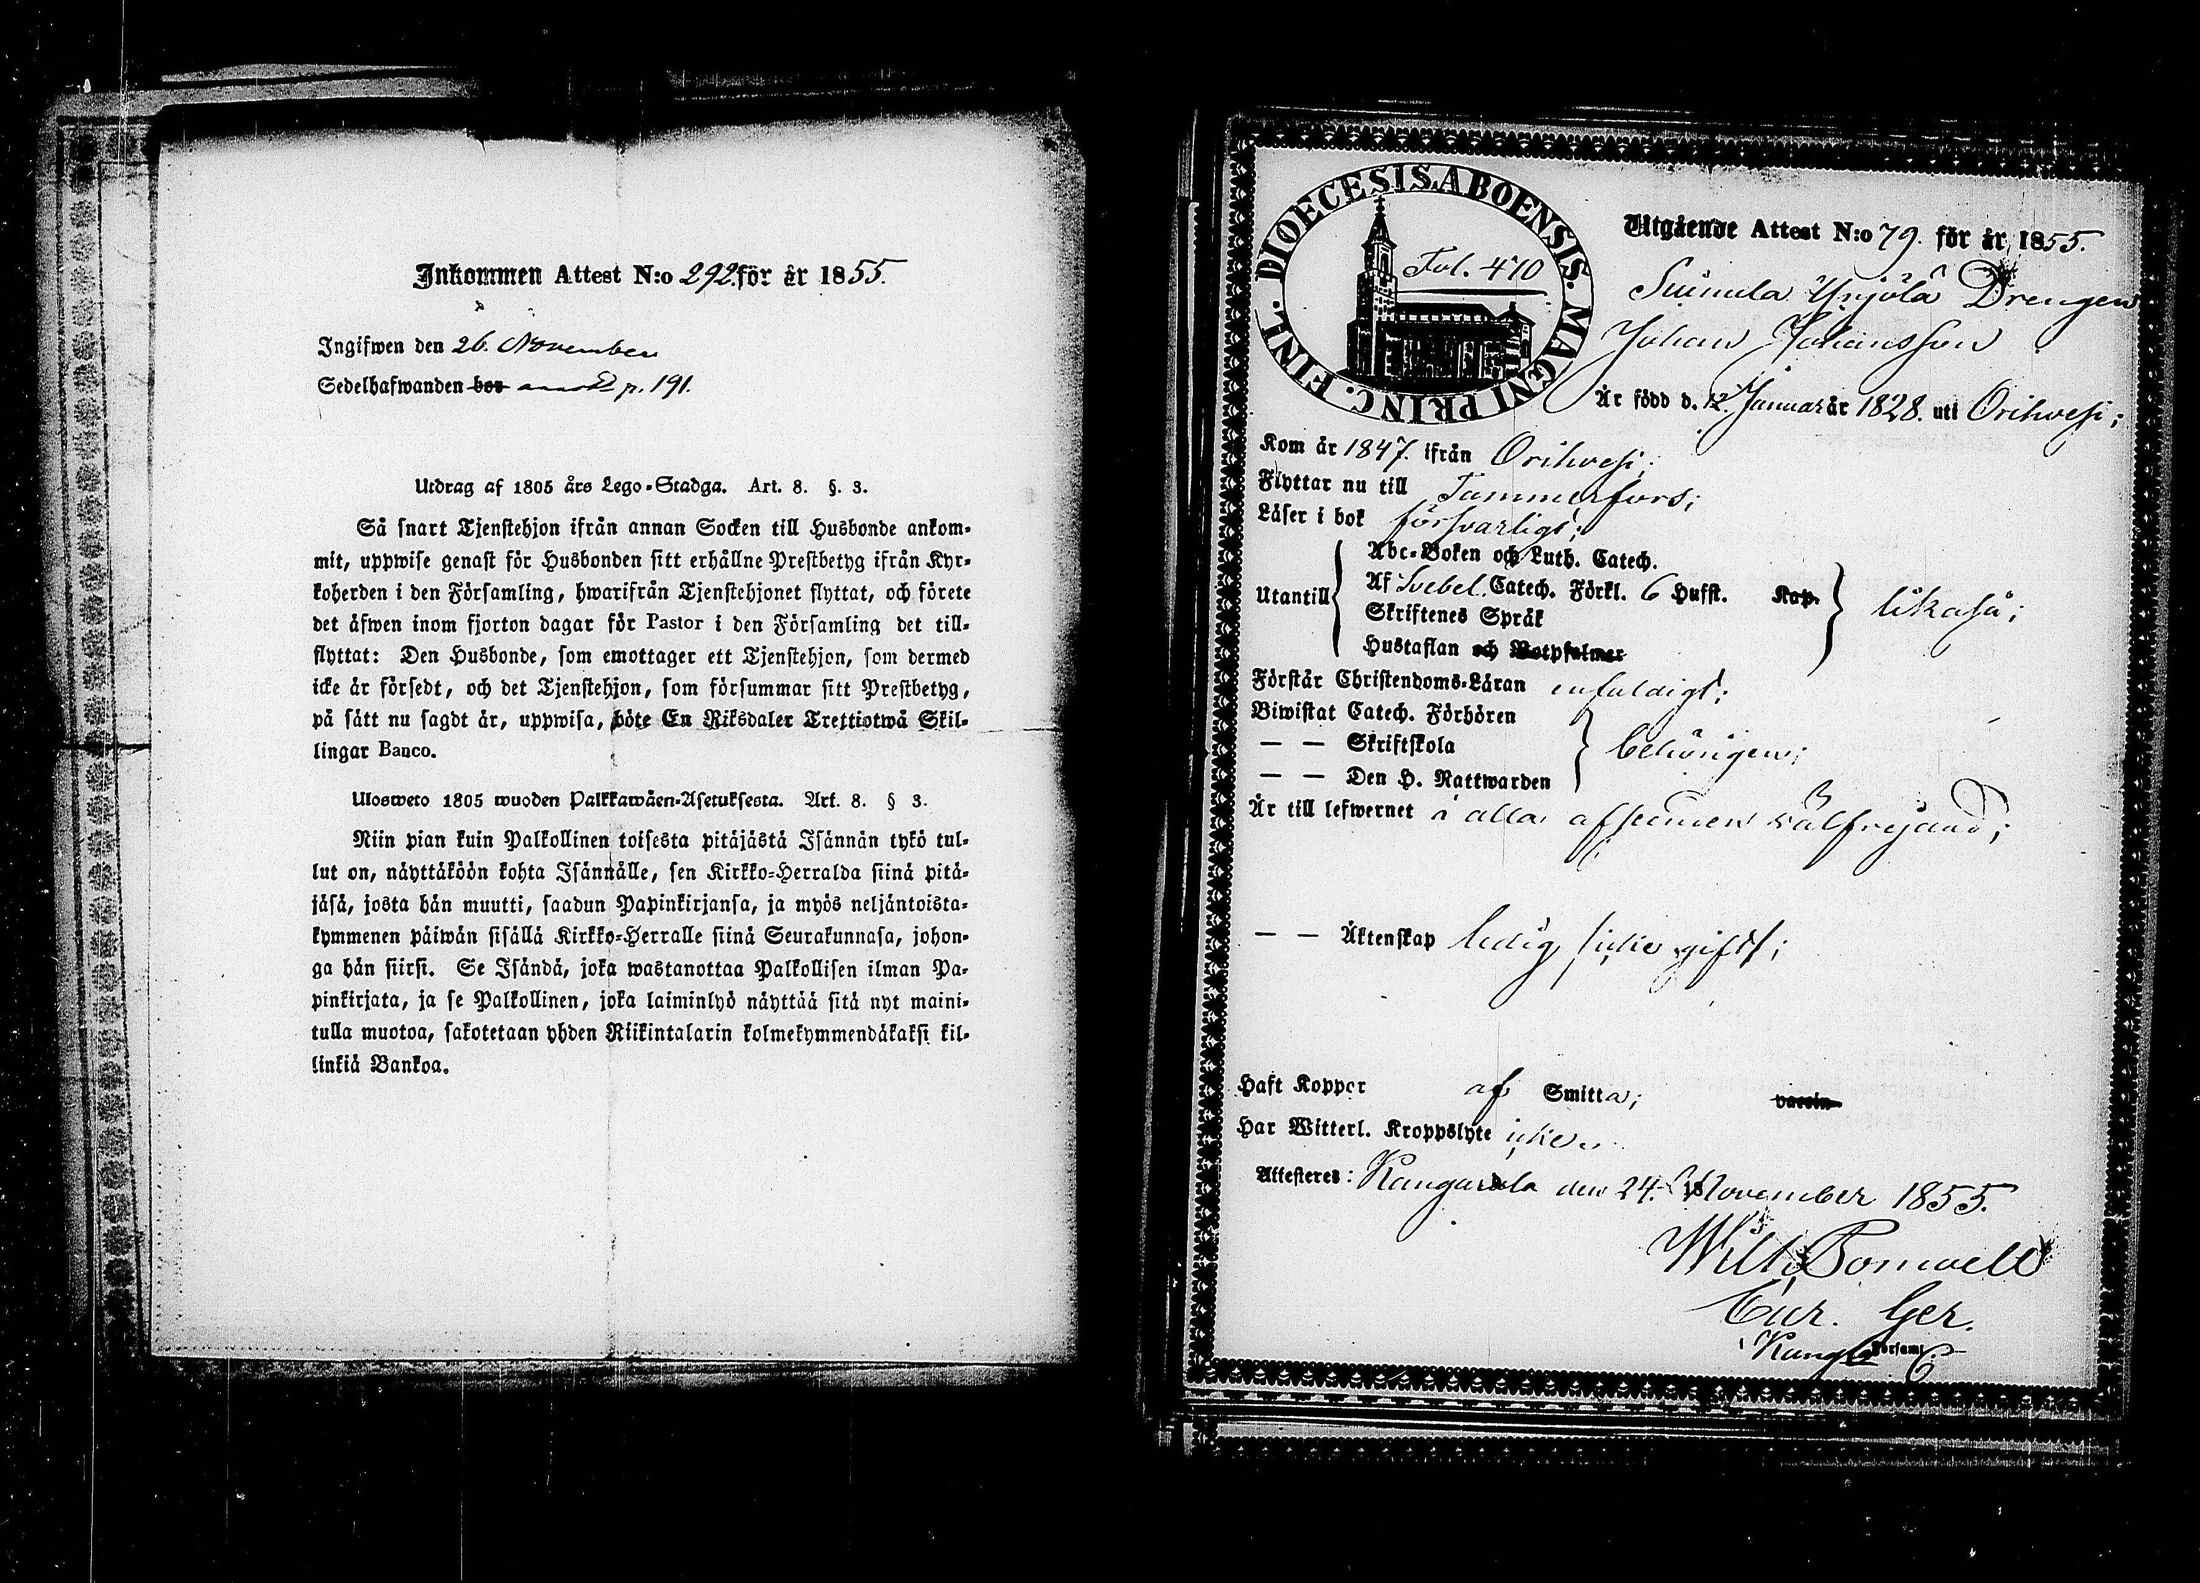 Inkommen Attest N:o 292. för år 1855.
Ingifwen den 26. November
Sedelhafwanden bor p. 191.
Utdrag af 1805 års Lego-Stadga. Art. 8. §. 3.
Så snart Tjenstehjon ifrån annan Socken till Husbonde ankom-
mit, uppwise genast för Husbonden sitt erhållne Prestbetyg ifrån Kyr-
koherden i den Församling, hwarifrån Tjenstehjonet flyttat, och förete
det äfwen inom fjorton dagar för Pastor i den Församling det till-
flyttat: Den Husbonde, som emottager ett Tjenstehjon, som dermed
icke är försedt, och det Tjenstehjon, som försummar sitt Prestbetyg,
på sätt nu sagdt är, uppwisa, böte En Riksdaler Trettiotwå Skil-
lingar Banco.
Ulosweto 1805 wuoden Palkkawäen-Asetuksesta. Art. 8. § 3.
Niin pian kuin Palkollinen toisesta pitäjästä Isännän tykö tul-
lut on, näyttäköön kohta Isännälle, sen Kirkko-Herralda siinä pitä-
jäsä, josta hän muutti, saadun Papinkirjansa, ja myös neljäntoista-
kymmenen päiwän sisällä Kirkko-Herralle siinä Seurakunnasa, johon-
ga hän siirsi. Se Isändä, joka wastanottaa Palkollisen ilman Pa-
pinkirjata, ja se Palkollinen, joka laiminlyö näyttää sitä nyt maini-
tulla muotoa, sakotetaan yhden Riikintalarin kolmekymmendäkaksi kil-
linkiä Bankoa.
DIOECESIS ABOENSIS. MAGNI PRINC. FINL.
Fol. 470
Utgående Attest N:o 79. för år 1855.
Suinula Yrjölä Drengen
Johan Johansson
Är född d. 12. Januar år 1828. uti Orihvesi;
Kom år 1847. ifrån Orihvesi;
Flyttar nu till Tammerfors;
Läser i bok försvarligt;
Abc-Boken och Luth. Catech.
Utantill Af Svebel. Catech. Förkl. 6 Hufst. Kap. likaså;
Skriftenes Språk
Hustaflan och Botpsalmer
Förstår Christendoms-Läran enfaldigt;
Biwistat Catech. Förhören
— — Skriftskola behörigen;
— — Den H. Nattwarden
Är till lefwernet i alla afseenden välfrejdad;
— — Äktenskap ledig, icke gift;
Haft Koppor af Smitta; vaccin
Har Witterl. Kroppslyte icke.
Attesteras: Kangasala den 24. November 1855.
Cur. Ger.
Församl.